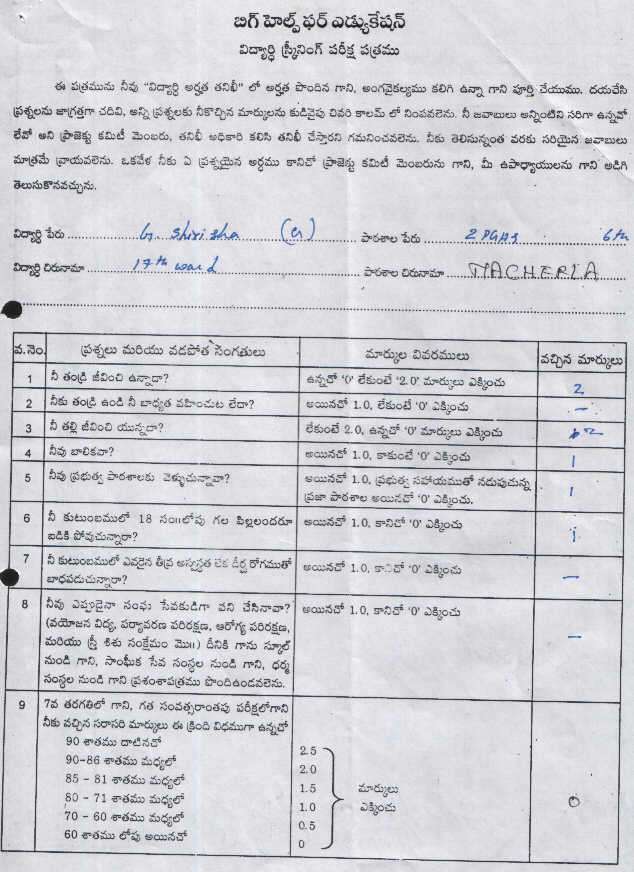 బిగ్ హెల్ప్ ఫర్ ఎడ్యుకేషన్
విద్యార్థి స్క్రీనింగ్ పరీక్ష పత్రము
ఈ పత్రమును నీవు "విద్యార్థి అర్హత తనిఖీ" లో అర్హత పొందిన గాని, అంగవైకల్యము కలిగి ఉన్నా గాని పూర్తి చేయుము. దయచేసి
ప్రశ్నలను జాగ్రత్తగా చదివి, అన్ని ప్రశ్నలకు నీకొచ్చిన మార్కులను కుడివైపు చివరి కాలమ్ లో నింపవలెను. నీ జవాబులు అన్నింటిని సరిగా ఉన్నవో
లేవో అని ప్రాజెక్టు కమిటీ మెంబరు, తనిఖీ అధికారి కలిసి తనిఖీ చేస్తారని గమనించవలెను. నీకు తెలిసున్నంత వరకు సరియైన జవాబులు
మాత్రమే వ్రాయవలెను. ఒకవేళ నీకు ఏ ప్రశ్నయైన అర్థము కానిచో ప్రాజెక్టు కమిటీ మెంబరును గాని, మీ ఉపాధ్యాయులను గాని అడిగి
తెలుసుకొనవచ్చును.
విద్యార్థి పేరు G. Shirisha (G) పాఠశాల పేరు 2 PGHS 6th
విద్యార్థి చిరునామా 17th ward పాఠశాల చిరునామా MACHERLA
వ.నెం. ప్రశ్నలు మరియు వడపోత సంగతులు మార్కుల వివరములు వచ్చిన మార్కులు
1 నీ తండ్రి జీవించి ఉన్నాడా? ఉన్నచో '0' లేకుంటే '2.0' మార్కులు ఎక్కించు 2
2 నీకు తండ్రి ఉండి నీ బాధ్యత వహించుట లేదా? అయినచో 1.0, లేకుంటే '0' ఎక్కించు –
3 నీ తల్లి జీవించి యున్నదా? లేకుంటే 2.0, ఉన్నచో '0' మార్కులు ఎక్కించు
4 నీవు బాలికవా? అయినచో 1.0, కాకుంటే '0' ఎక్కించు 1
5 నీవు ప్రభుత్వ పాఠశాలకు వెళ్ళుచున్నావా? అయినచో 1.0, ప్రభుత్వ సహాయముతో నడుపుచున్న 1
ప్రజా పాఠశాల అయినచో '0' ఎక్కించు.
6 నీ కుటుంబములో 18 సం॥లోపు గల పిల్లలందరూ అయినచో 1.0, కానిచో '0' ఎక్కించు 1
బడికి పోవుచున్నారా?
7 నీ కుటుంబములో ఎవరైన తీవ్ర అస్వస్థత లేక దీర్ఘ రోగముతో అయినచో 1.0, కానిచో '0' ఎక్కించు –
బాధపడుచున్నారా?
8 నీవు ఎప్పుడైనా సంఘ సేవకుడిగా పని చేసినావా? అయినచో 1.0, కానిచో '0' ఎక్కించు –
(వయోజన విద్య, పర్యావరణ పరిరక్షణ, ఆరోగ్య పరిరక్షణ,
మరియు స్త్రీ శిశు సంక్షేమం మొ॥) దీనికి గాను స్కూల్
నుండి గాని, సాంఘీక సేవ సంస్థల నుండి గాని, ధర్మ
సంస్థల నుండి గాని ప్రశంశాపత్రము పొందిఉండవలెను.
9 7వ తరగతిలో గాని, గత సంవత్సరాంతపు పరీక్షలోగాని
నీకు వచ్చిన సరాసరి మార్కులు ఈ క్రింది విధముగా ఉన్నచో
90 శాతము దాటినచో 2.5
90-86 శాతము మధ్యలో 2.0
85 – 81 శాతము మధ్యలో 1.5 మార్కులు
80 – 71 శాతము మధ్యలో 1.0 ఎక్కించు 0
70 – 60 శాతము మధ్యలో 0.5
60 శాతము లోపు అయినచో 0